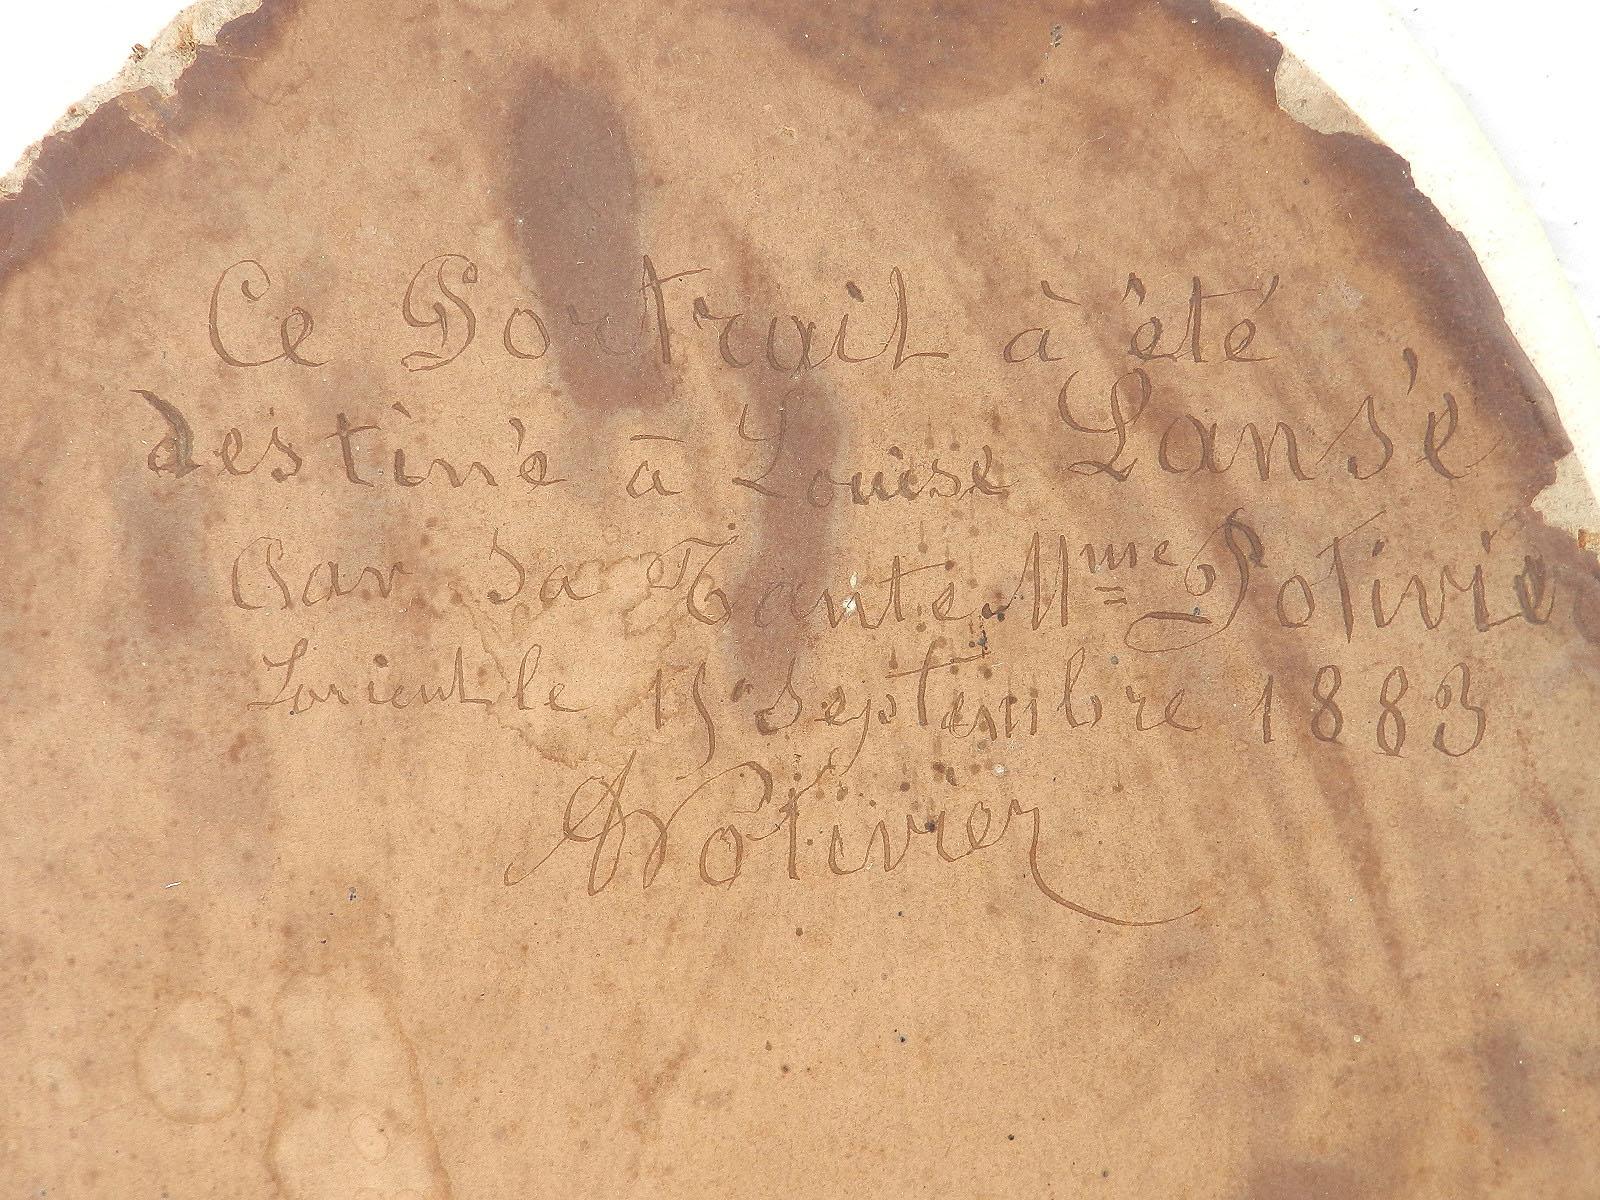 Ce Portrait à été
destiné à Louise Lansé
Par Sa Tante Mme Potivier
Lorient le 15 Septembre 1883
Potivier